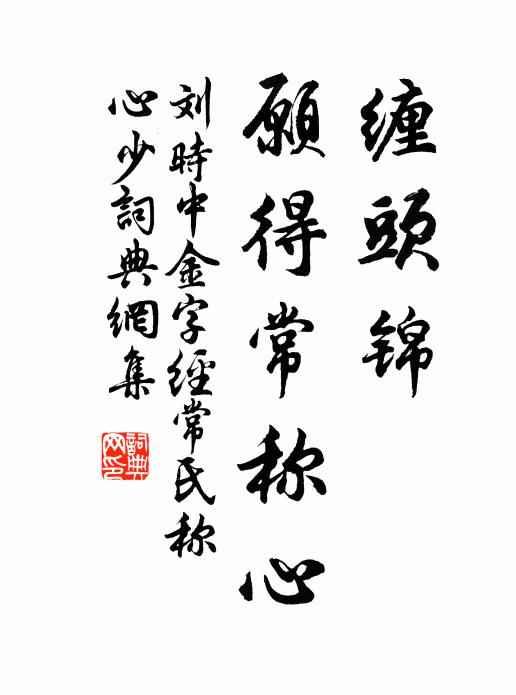 缠頭锦
願得常称心
刘時中金字經常氏称
心少詞典網集
詞典
网印